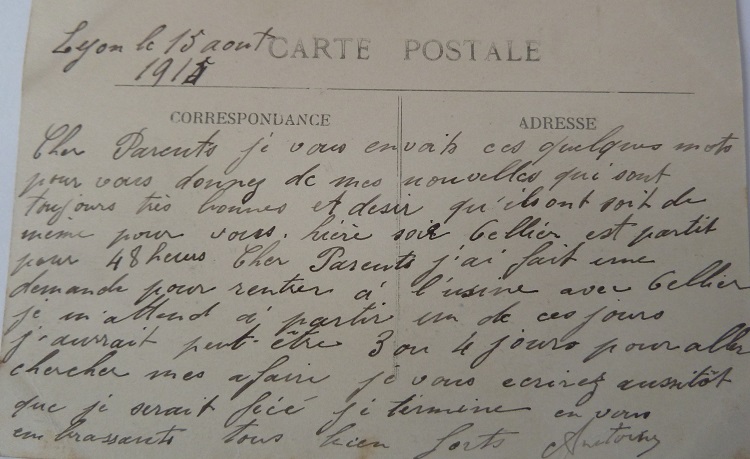 Lyon le 15 aout
1915
CARTE POSTALE
CORRESPONDANCE
ADRESSE
Cher Parents je vous envoits ces quelques mots
pour vous donnez de mes nouvelles qui sont
toujours très bonnes et desir qu'ils ont soit de
meme pour vous. hière soir Cellier est partit
pour 48 heurs Cher Parents j'ai fait une
demande pour rentrer à l'usine avec Cellier
je m'attend à partir un de ces jours
j'aurrait peut-être 3 ou 4 jours pour aller
chercher mes afair je vous ecrirez aussitôt
que je serait fixé je termine en vous
embrassants tous bien forts